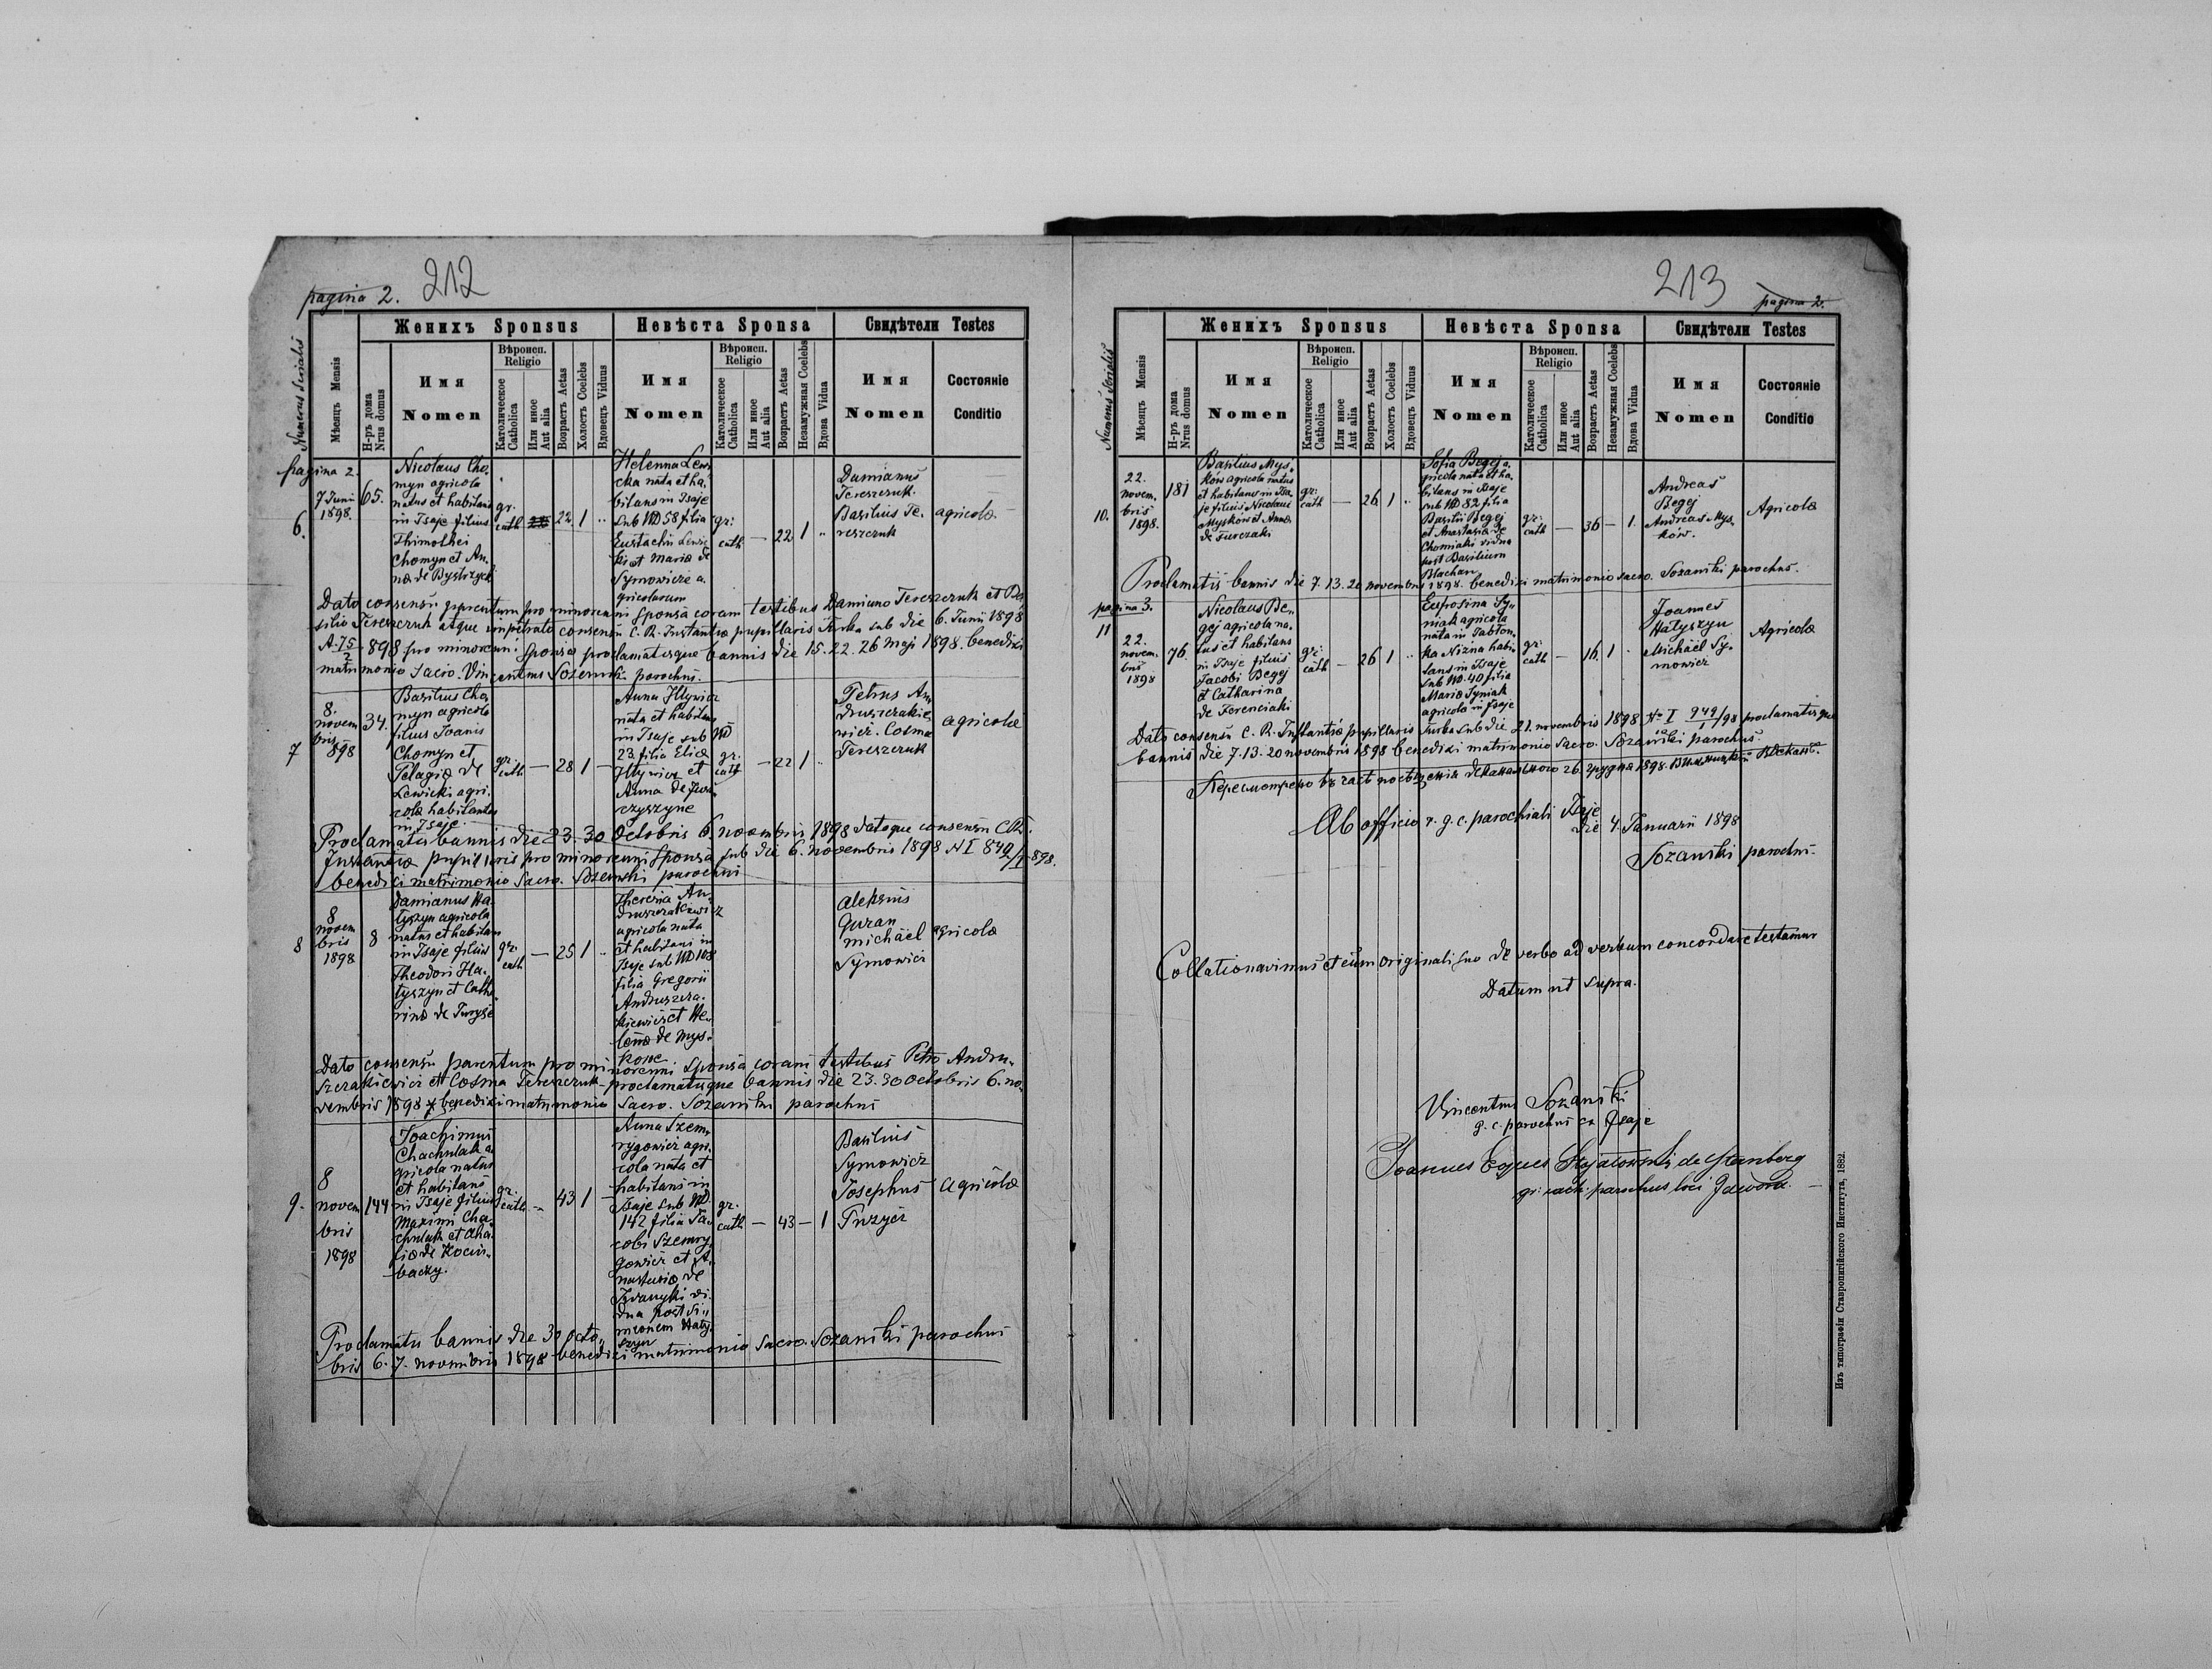 pagina 2. 212
Женихъ Sponsus
Невѣста Sponsa
Свидѣтели Testes
Numerus serialis
Мѣсяцъ Mensis
Н-ръ дома
Nrus domus
Имя
Nomen
Вѣроисп.
Religio
Католическое
Catholica
Или иное
Aut alia
Возрастъ Aetas
Холостъ Coelebs
Вдовецъ Viduus
Имя
Nomen
Вѣроисп.
Religio
Католическое
Catholica
Или иное
Aut alia
Возрастъ Aetas
Незамужная Coelebs
Вдова Vidua
Имя
Nomen
Состояніе
Conditio
pagina 2.
6.
7 Juni
1898.
65.
Nicolaus Cho-
myn agricola
natus et habitans
in Isaje filius
Thimothei
Chomyn et An-
na de Bystrzyck
gr.
cath
22 1 "
Helenna Lewi-
cka nata et ha-
bitans in Isaje
sub ND 58 filia
Eustachii Lewic
ki et Maria de
Symowicze a-
gricolarum
gr:
cath
— 22 1 "
Damianus
Tereszczuk
Basilius Te-
reszczuk
agricola
Dato consensu parentum pro minorenni sponsa coram testibus Damiano Tereszczuk et Ba-
silio Tereszczuk atque impetrato consensu C. R. Instantia pupillaris Turka sub die 6. Junii 1898
A 75/2 898 pro minorenni sponsa proclamatisque bannis die 15. 22. 26 Maji 1898. benedixi
matrimonio sacro. Vincentius Sozański parochus.
7
8.
novem
bris
898
34.
Basilius Cho-
myn agricola
filius Joanis
Chomyn et
Pelagia de
Lewicki agri-
cola habitantes
in Isaje.
gr.
cath
— 28 1 —
Anna Ilywicz
nata et habitans
in Isaje sub ND
23 filia Elia
Ilywicz et
Anna de Iwa-
czyszyne
gr.
cath
— 22 1 "
Petrus An-
druszczakie-
wicz. Cosma
Tereszczuk
agricola
Proclamatis bannis die 23. 30 Octobris 6. novembris 1898 datoque consensu C.R.
Instantia pupillaris pro minorenni sponsa sub die 6. novembris 1898 N I 849/1 898.
benedixi matrimonio sacro. Sozański parochus
8
8
novem
bris
1898
8
Damianus Ha-
tyszyn agricola
natus et habitans
in Isaje filius
Theodori Ha-
tyszyn et Catha
rina de Turyje
gr.
cath
— 25 1 "
Theresia An-
druszczakiewicz
agricola nata
et habitans in
Isaje sub ND 108
filia Gregorii
Andruszcza-
kiewicz et He-
lena de Mys-
kowe.
Aleksius
Guran
michael
Symowicz
agricola
Dato consensu parentum pro minorenni sponsa coram testibus Petro Andru-
szczakiewicz et Cosma Tereszczuk proclamatisque bannis die 23. 30 Octobris 6. no-
vembris 1898 benedixi matrimonio sacro. Sozański parochus
9.
8
novem
bris
1898
144
Joachimus
Chachulak a-
gricola natus
et habitans
in Isaje filius
Maximi Cha-
chulak et Aha-
fia de Kociu-
backy.
gr.
cath
— 43 1
Anna Szem-
rygowicz agri-
cola nata et
habitans in
Isaje sub ND
142 filia Ja-
cobi Szemry-
gowicz et A-
nastasia de
Iwanyki vi-
dua post Si-
meonem Haty-
szyn
gr.
cath
— 43 — 1
Basilius
Symowicz
Josephus
Puzycz
Agricola
Proclamatis bannis die 30 Octo-
bris 6. 7. novembris 1898 benedixi matrimonio sacro. Sozański parochus
213 pagina 2.
Женихъ Sponsus
Невѣста Sponsa
Свидѣтели Testes
Numerus serialis
Мѣсяцъ Mensis
Н-ръ дома
Nrus domus
Имя
Nomen
Вѣроисп.
Religio
Католическое
Catholica
Или иное
Aut alia
Возрастъ Aetas
Холостъ Coelebs
Вдовецъ Viduus
Имя
Nomen
Вѣроисп.
Religio
Католическое
Catholica
Или иное
Aut alia
Возрастъ Aetas
Незамужная Coelebs
Вдова Vidua
Имя
Nomen
Состояніе
Conditio
10.
22.
novem-
bris
1898.
181
Basilius Mys-
ków agricola natus
et habitans in Isa-
je filius Nicolaus
Myskow et Anna
de Turczaki
gr:
cath
— 26 1 "
Sofia Begej a-
gricola nata et ha-
bitans in Isaje
sub ND 82 filia
Basilii Begej
et Anastasia de
Chomiaki vidua
post Basilium
Blachan
gr:
cath
— 36 — 1.
Andreas
Begej
Andreas Mys-
ków.
Agricola
Proclamatis bannis die 7. 13. 20 novembris 1898. benedixi matrimonio sacro. Sozański parochus.
pagina 3.
11
22.
novem-
bris
1898
76.
Nicolaus Be-
gej agricola na-
tus et habitans
in Isaje filius
Jacobi Begej
et Catharina
de Ferenciaki
gr:
cath
— 26 1 "
Eufrosina Ty-
niak agricola
nata in Jabłon-
ka Nizna habi-
tans in Isaje
sub ND. 40 filia
Maria Tyniak
agricola in Isaje
gr:
cath
— 16. 1
Joannes
Hatyszyn
Michael Sy-
mowicz
Agricola
Dato consensu C. R. Instantia pupillaris Turka sub die 21. novembris 1898 No I 949/1 98 proclamatisque
bannis die 7. 13. 20 novembris 1898 benedixi matrimonio sacro. Sozański parochus.
Ab officio r. g. c. parochiali Isaje
die 4. Januarii 1898
Sozański parochus.
Collationavimus et cum originali suo de verbo ad verbum concordare testamur
Datum ut supra.
Vincentius Sozański
g. c. parochus ex Isaje
Joannes Eques de Steinberg
gr: cath: parochus loci Jawora.
Изъ типографіи Ставропигійского Института, 1882.